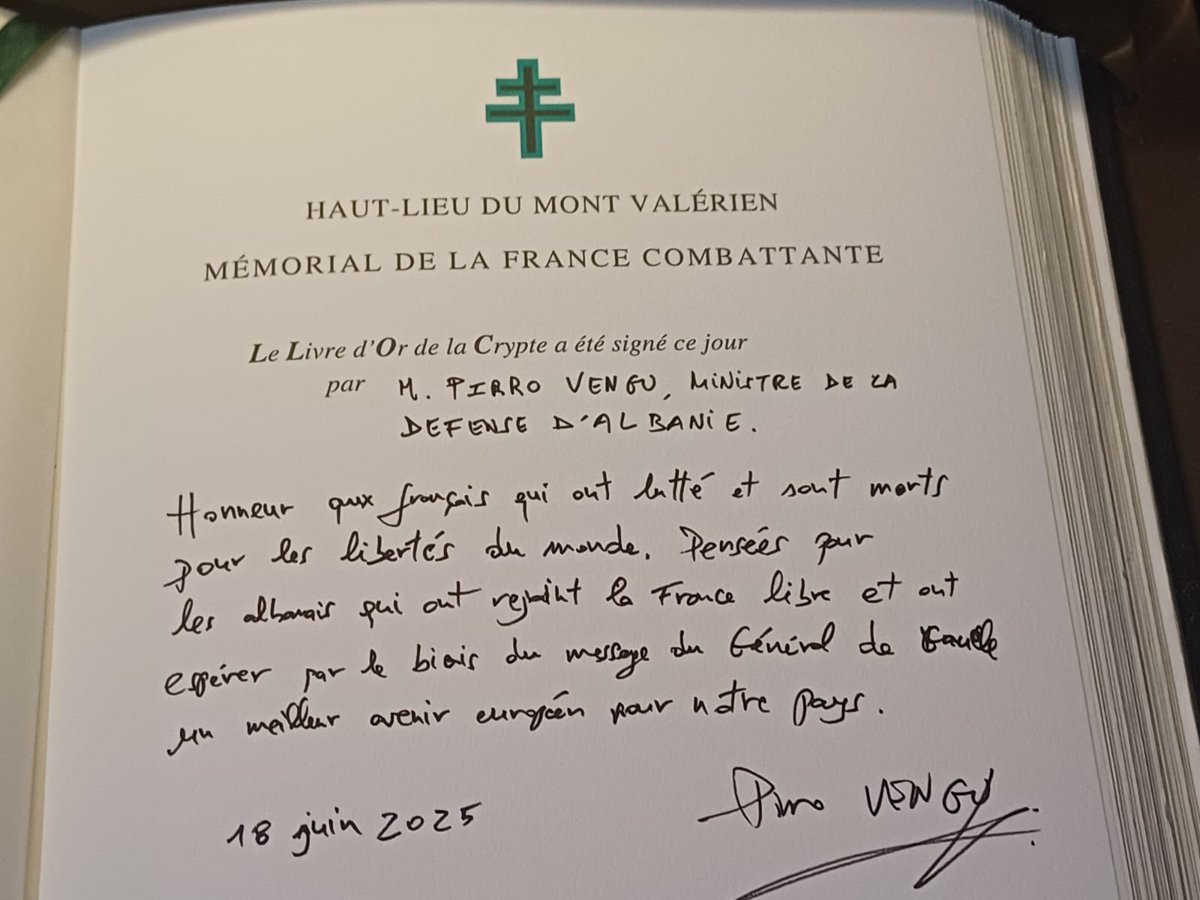 HAUT-LIEU DU MONT VALÉRIEN
MÉMORIAL DE LA FRANCE COMBATTANTE
Le Livre d'Or de la Crypte a été signé ce jour
par M. PIRRO VENGU, MINISTRE DE LA
DEFENSE D'ALBANIE.
Honneur aux français qui ont lutté et sont morts
pour les libertés du monde. Pensées pour
les albanais qui ont rejoint la France libre et ont
espérer par le biais du message du Général de Gaulle
un meilleur avenir européen pour notre pays.
18 juin 2025
Pirro VENGU